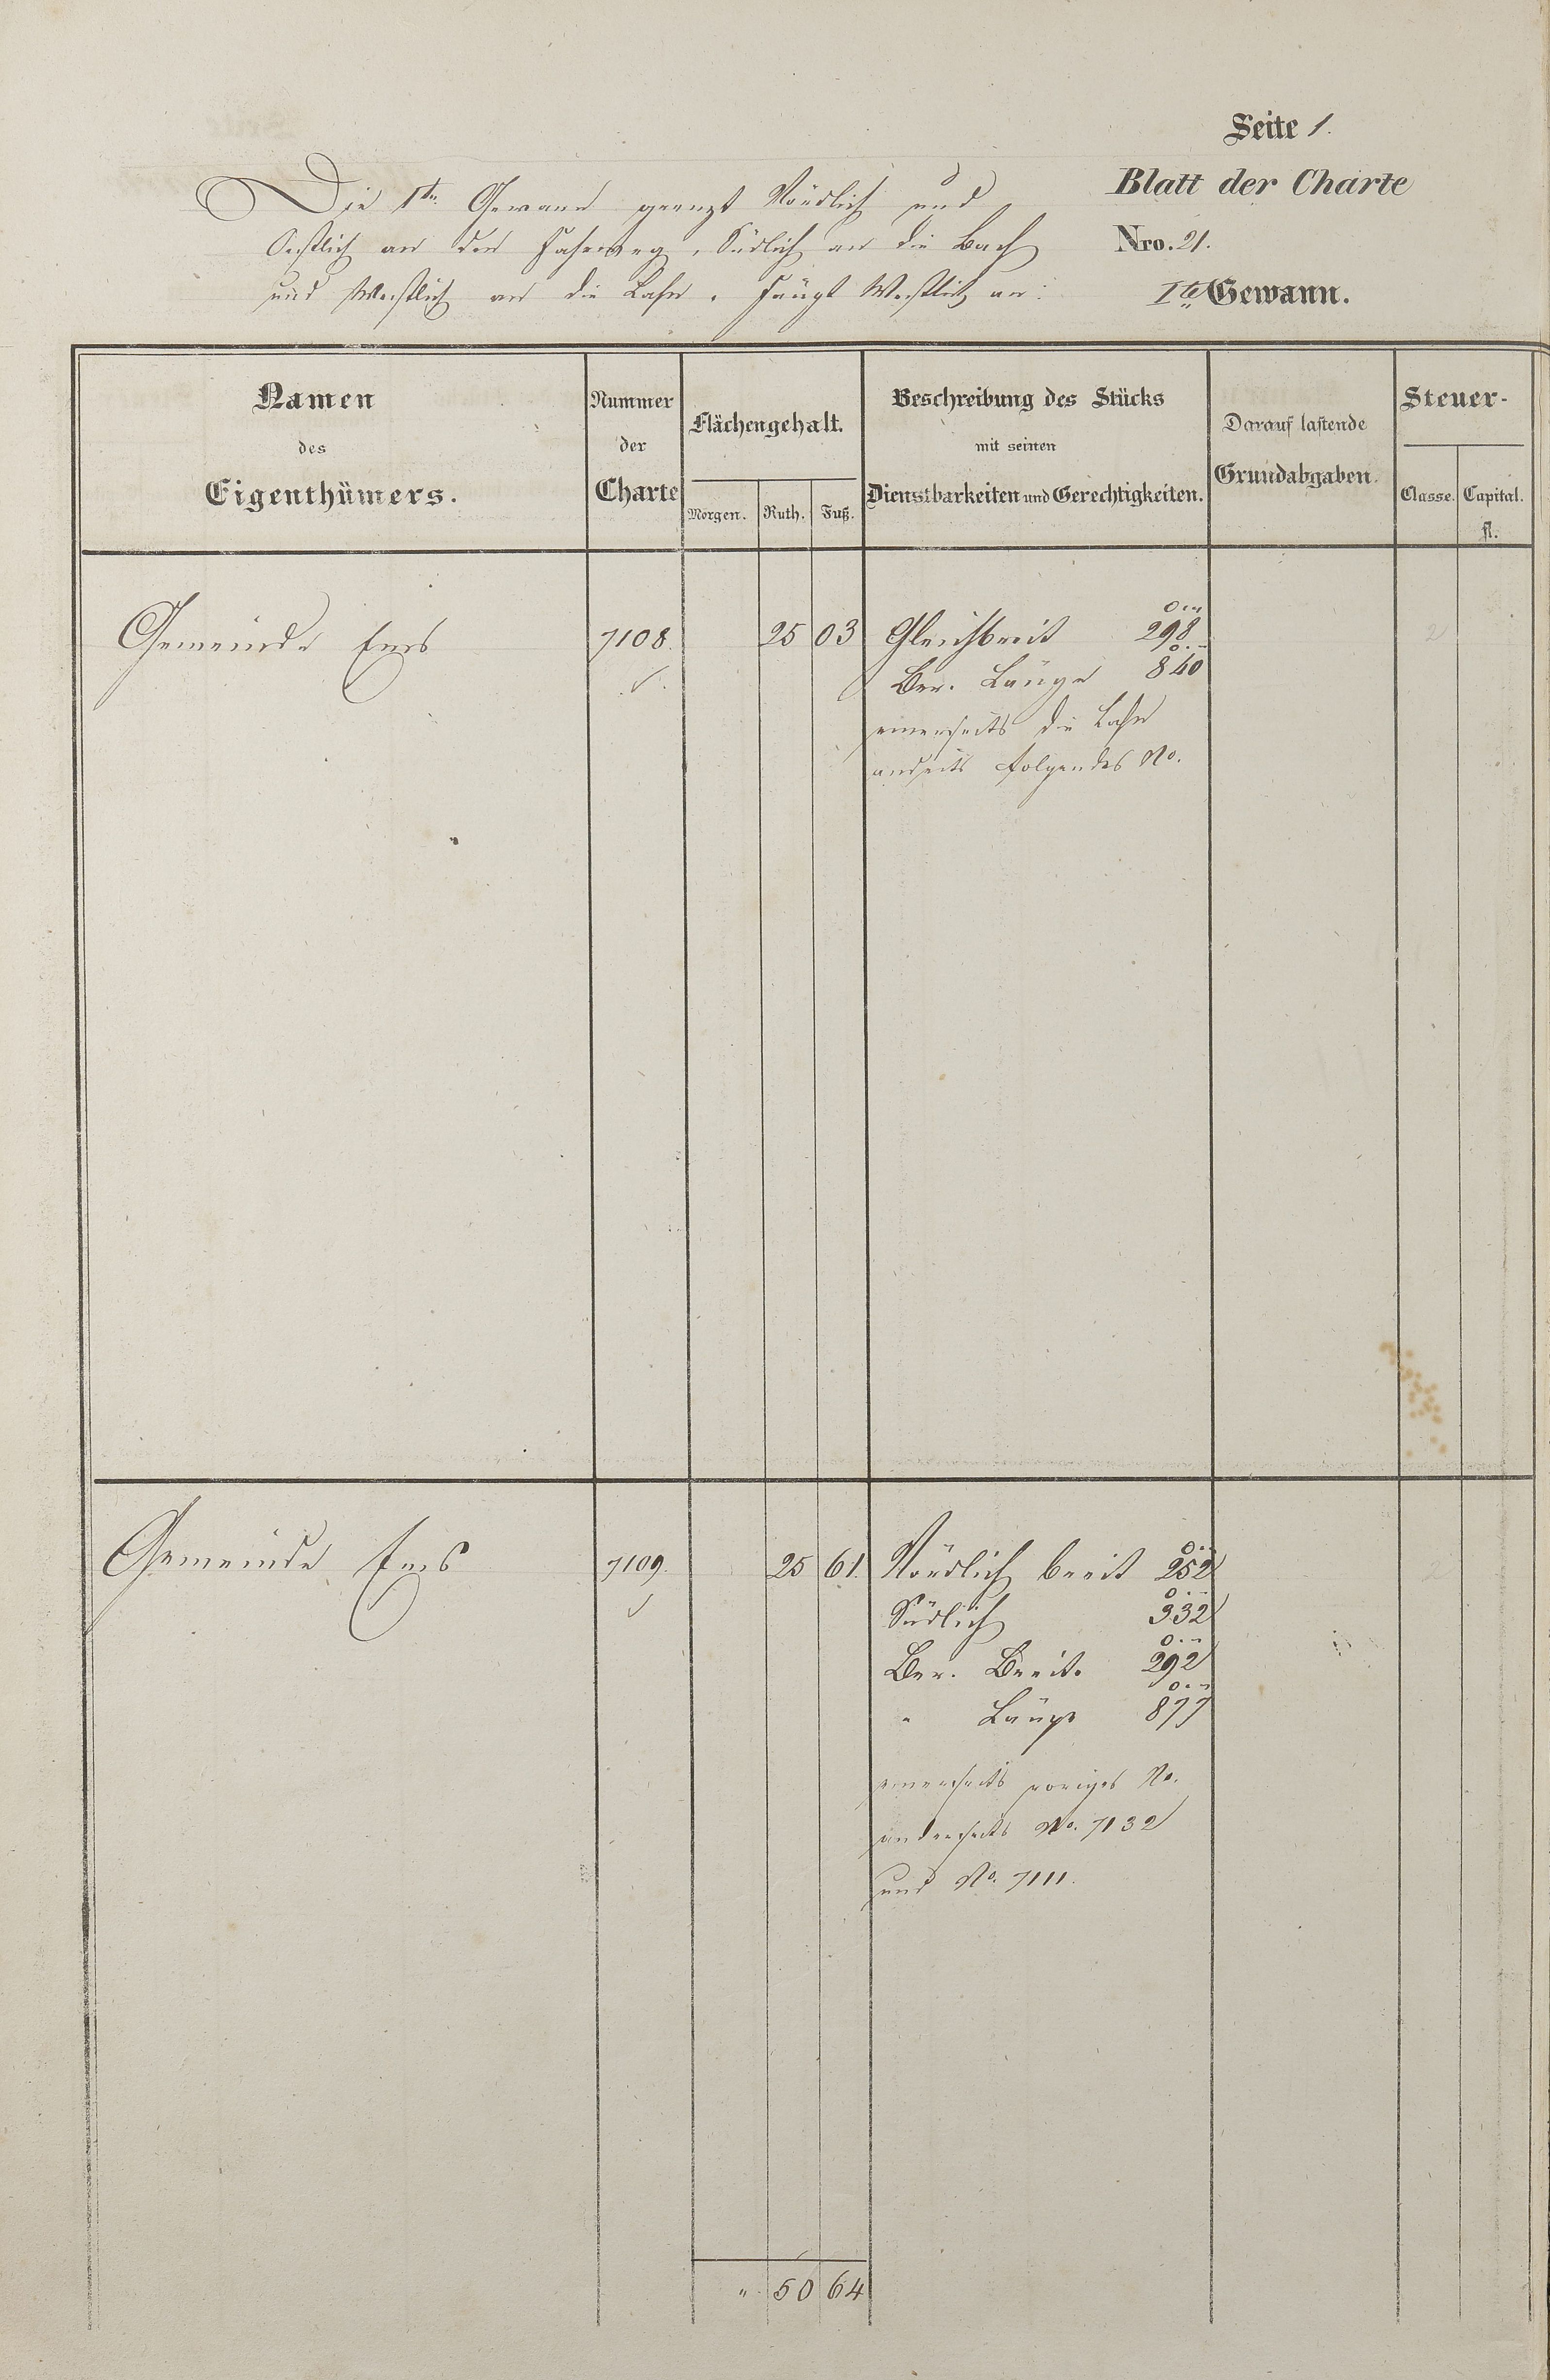 Seite 1.
Blatt der Charte
Nro. 21.
Ite Gewann.
Die 1te Gewann grenzt Nördlich und
Oestlich an den Fahrweg, Südlich an die Bach
und Westlich an die Lahn. Fängt Westlich an:
Namen
des
Eigenthümers.
Nummer
der
Charte
Flächengehalt.
Morgen. Ruth. Fuß.
Beschreibung des Stücks
mit seinen
Dienstbarkeiten und Gerechtigkeiten.
Darauf lastende
Grundabgaben.
Steuer-
Classe. Capital.
fl.
Gemeinde Ems 7108. 25 03 Gleichbreit 298
Ber. Länge 840
einerseits die Lahn
anderseits folgendes No.
2
Gemeinde Ems 7109. 25 61. Nördlich breit 252
Südlich 332
Ber. Breite 292
" Länge 877
einerseits voriges No.
anderseits No. 7132
und No. 7111.
2
" 50 64